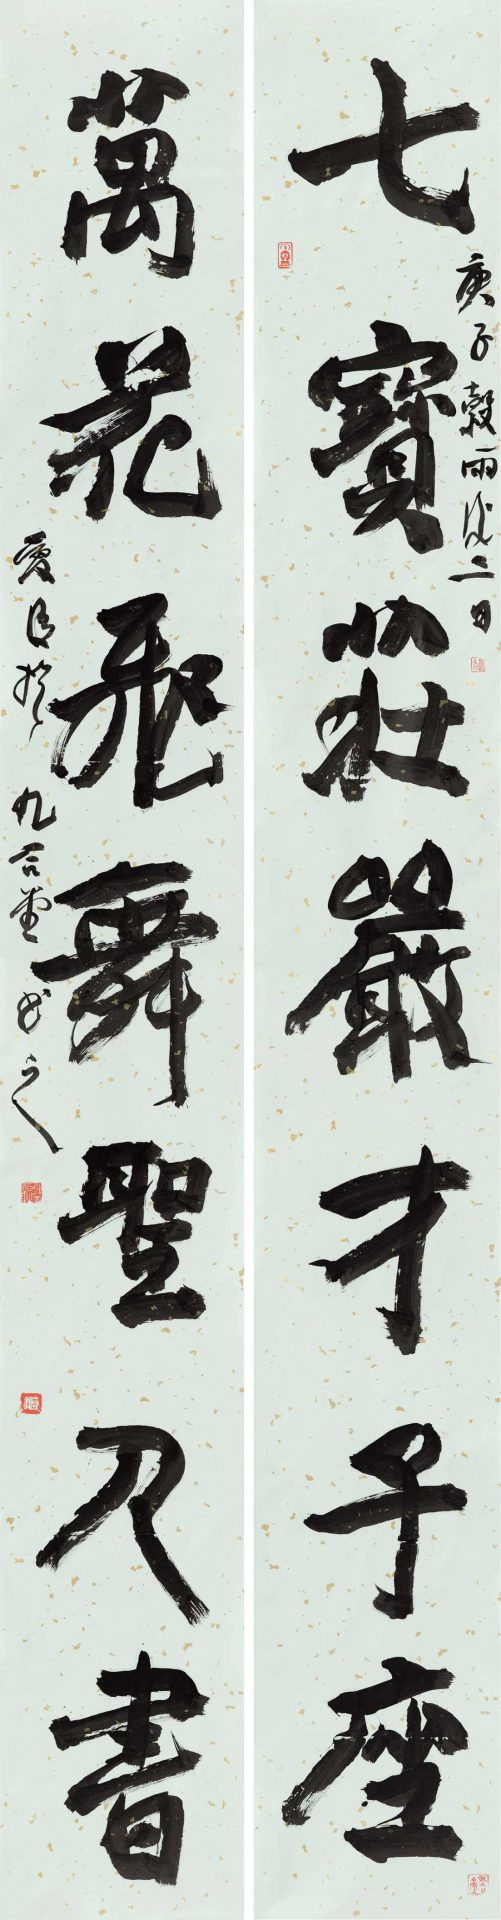 七寶莊嚴才子座
庚子穀雨後二日
萬花飛舞聖人書
於九言堂書之